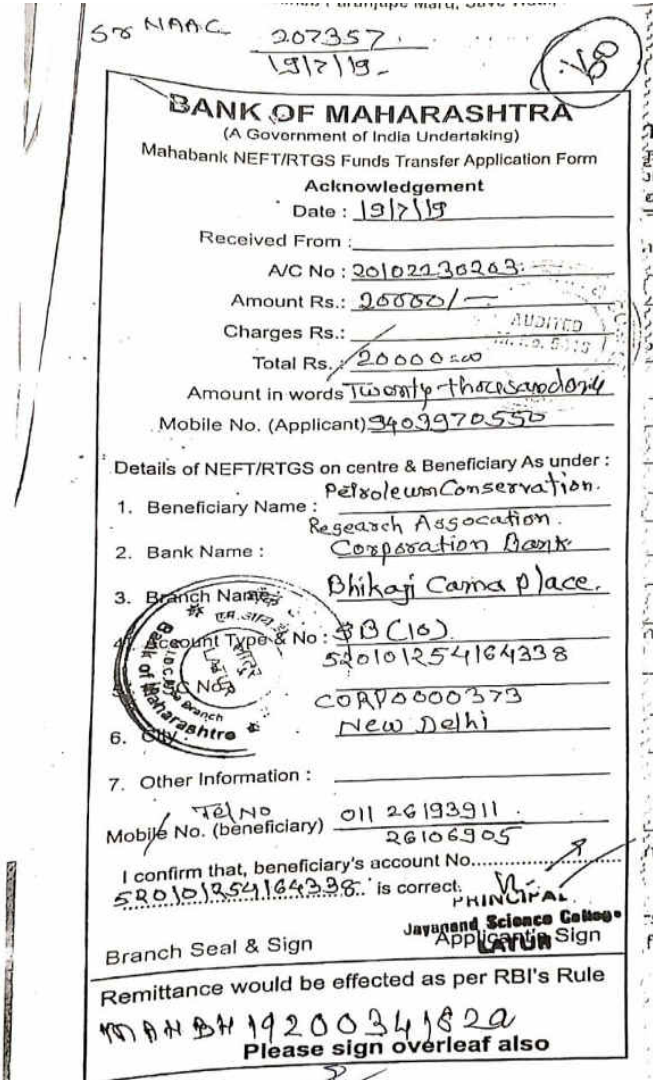 Sr NAAC 207357
19/7/19
BANK OF MAHARASHTRA
(A Government of India Undertaking)
Mahabank NEFT/RTGS Funds Transfer Application Form
Acknowledgement
Date : 19/7/19
Received From :
A/C No : 20102130263
Amount Rs.: 20000/-
Charges Rs.:
AUDITED
Total Rs. : 20000=00
Amount in words Twenty thousand only
Mobile No. (Applicant) 9403970550
Details of NEFT/RTGS on centre & Beneficiary As under :
1. Beneficiary Name : Petroleum Conservation.
Research Assocation.
2. Bank Name : Corporation Bank
3. Branch Name : Bhikaji Cama place.
4. Account Type & No : SB (10)
520101254164338
C No. CORP0000373
6. City : New Delhi
Bank of Maharashtra
LATUR
Branch
7. Other Information :
Tel No
Mobile No. (beneficiary) 011 26193911
26106905
I confirm that, beneficiary's account No..............
520101254164338 is correct.
PRINCIPAL
Jayanand Science College
LATUR
Branch Seal & Sign Applicant's Sign
Remittance would be effected as per RBI's Rule
MAHBH19200341822
Please sign overleaf also